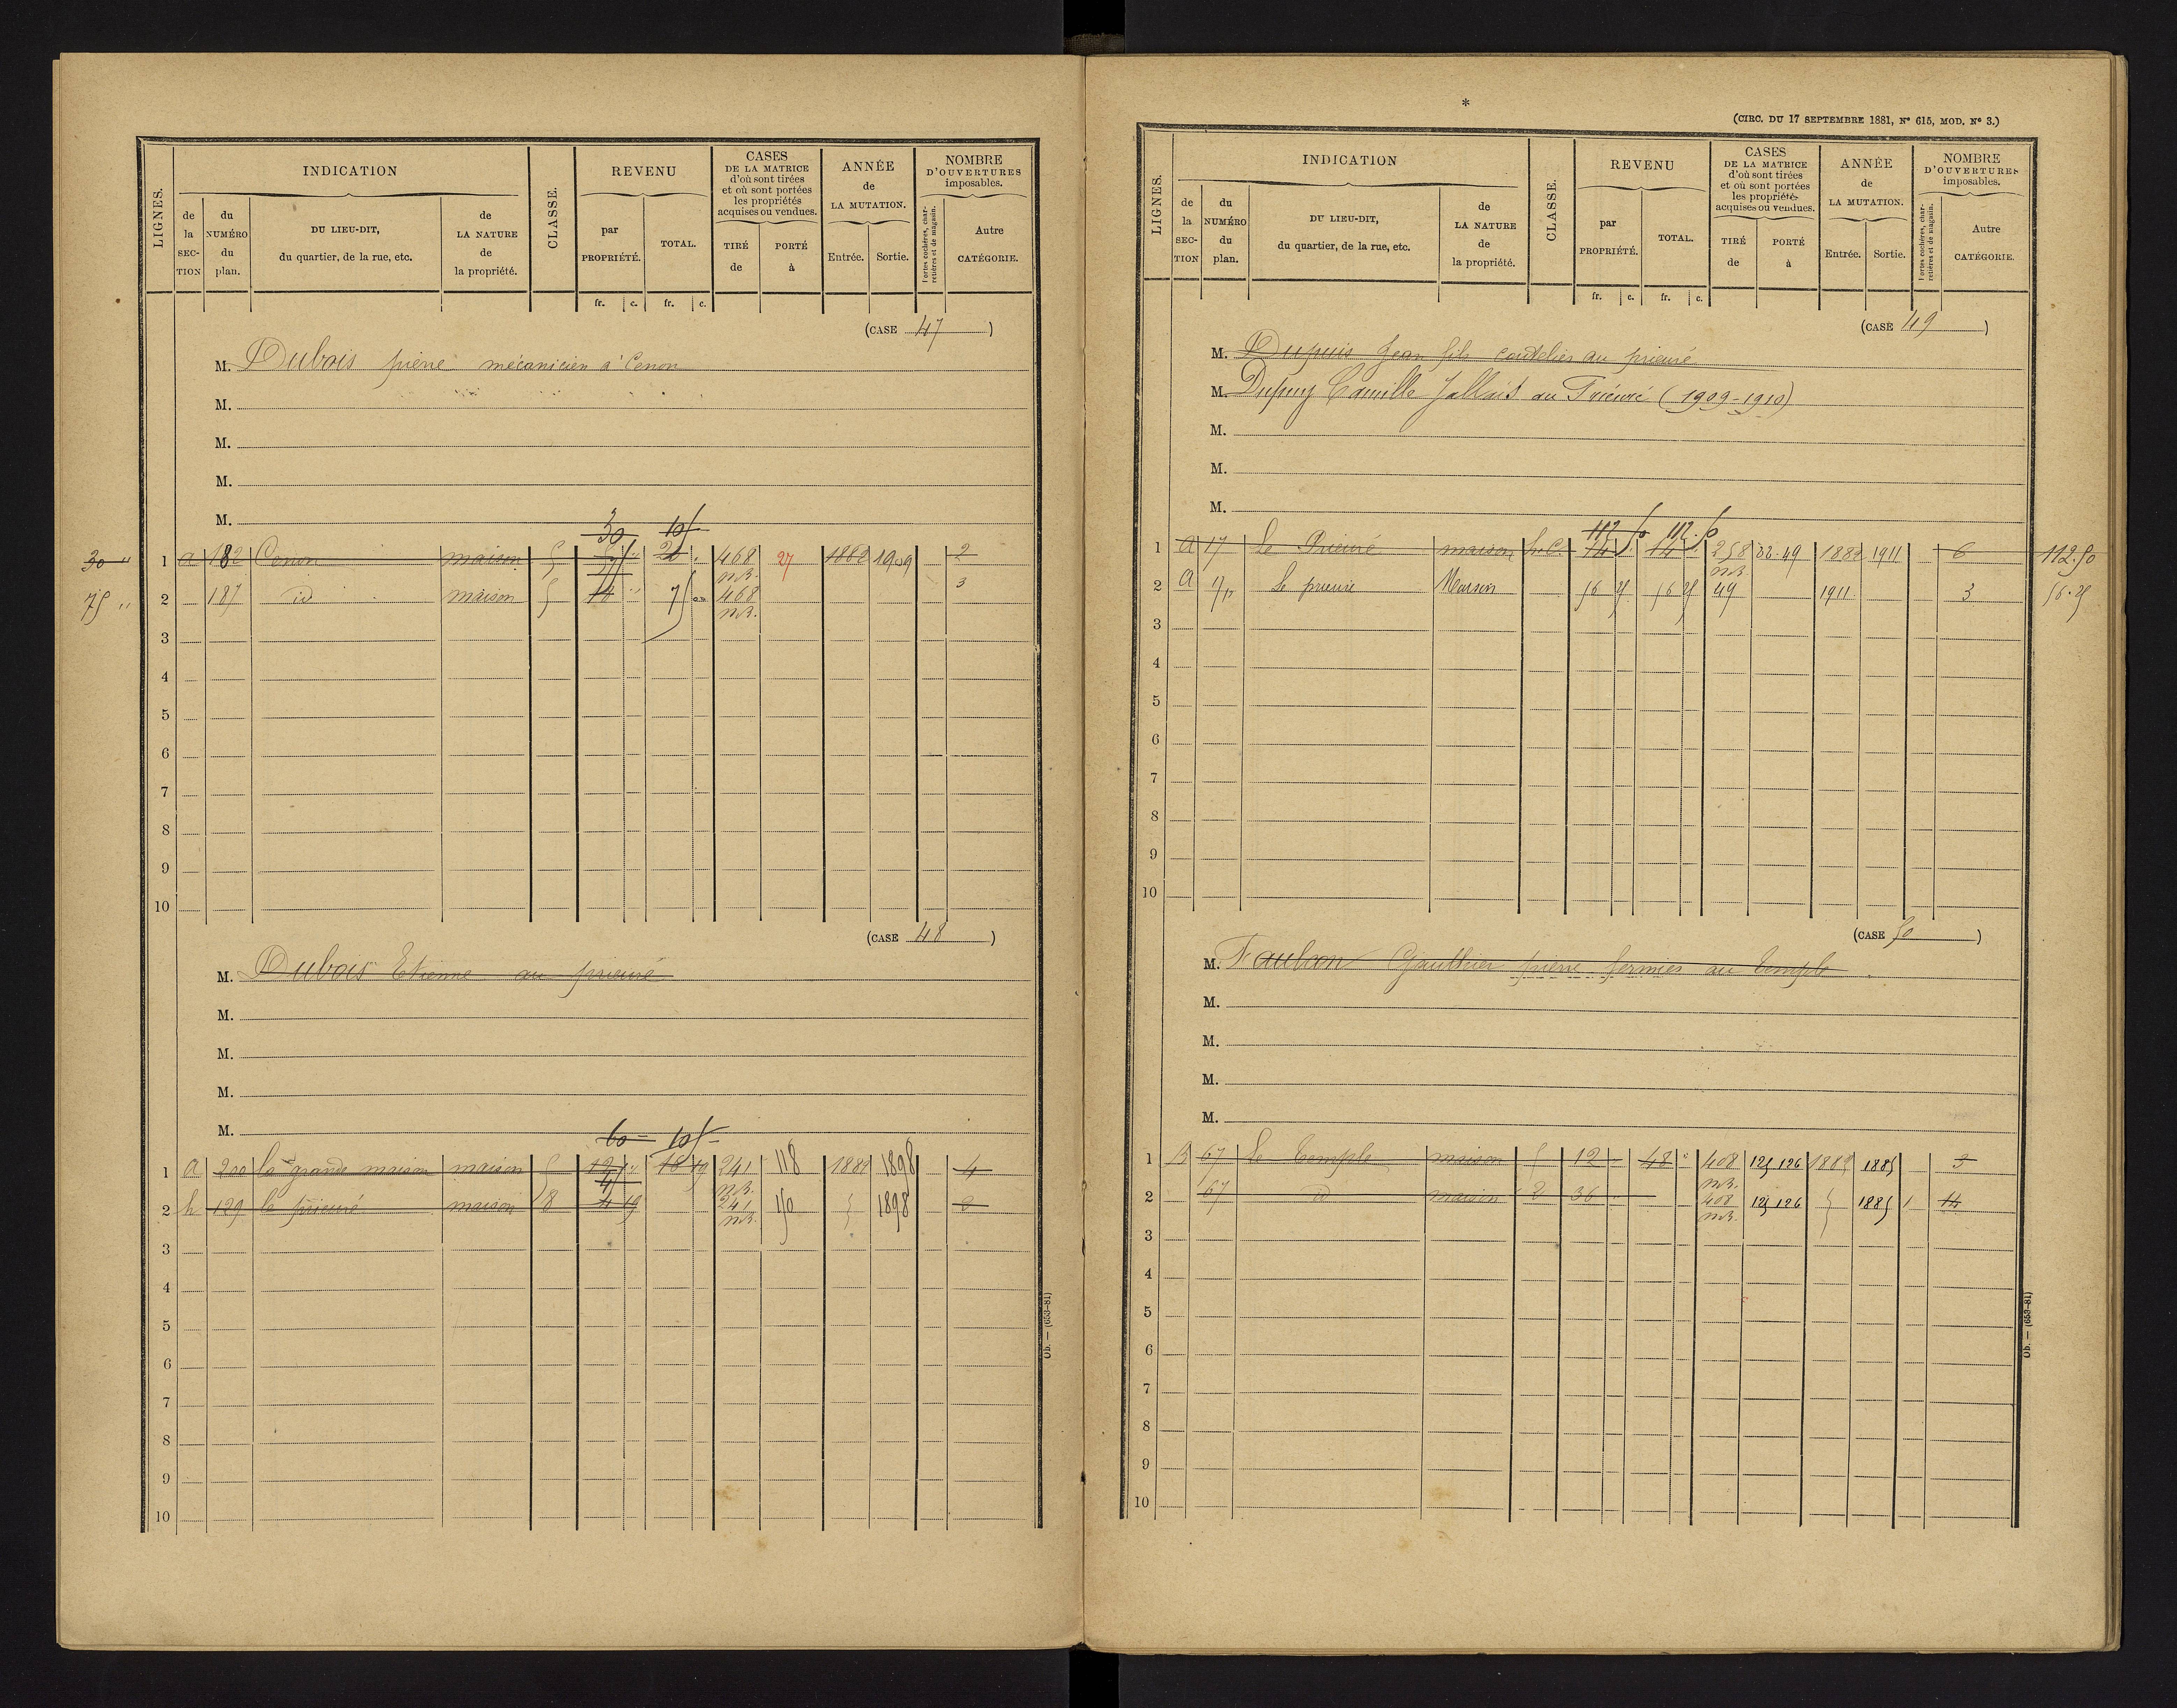 INDICATION
REVENU
CASES
DE LA MATRICE
d'où sont tirées
et où sont portées
les propriétés
acquises ou vendues.
ANNÉE
de
LA MUTATION.
NOMBRE
D'OUVERTURES
imposables.
LIGNES.
de la SEC-TION
du NUMÉRO du plan.
DU LIEU-DIT,
du quartier, de la rue, etc.
de LA NATURE de la propriété.
CLASSE.
par PROPRIÉTÉ.
TOTAL.
TIRÉ de
PORTÉ à
Entrée.
Sortie.
Portes cochères, char-
retières et de magasin.
Autre CATÉGORIE.
fr. c. fr. c.
(CASE 47)
M. Dubois pierre mécanicien à Cenon
M.
M.
M.
M.
30 105
30 " 1 a 182 Cenon maison 5 20 " 468 27 1882 1909 2
m.R.
75 " 2 187 id maison 5 14 " 75 468 3
m.R.
3
4
5
6
7
8
9
10
(CASE 48)
M. Dubois Etienne au prieuré
M.
M.
M.
M.
60 105
1 a 200 la grande maison maison 5 12 " 16 19 241 118 1882 1898 4
m.R.
45
2 h 129 le prieuré maison 8 4 19 241 150 1898 2
m.R.
3
4
5
6
7
8
9
10
Ob. — (653-81)
*
(CIRC. DU 17 SEPTEMBRE 1881, N° 615, MOD. N° 3.)
INDICATION
REVENU
CASES
DE LA MATRICE
d'où sont tirées
et où sont portées
les propriétés
acquises ou vendues.
ANNÉE
de
LA MUTATION.
NOMBRE
D'OUVERTURES
imposables.
LIGNES.
de la SEC-TION
du NUMÉRO du plan.
DU LIEU-DIT,
du quartier, de la rue, etc.
de LA NATURE de la propriété.
CLASSE.
par PROPRIÉTÉ.
TOTAL.
TIRÉ de
PORTÉ à
Entrée.
Sortie.
Portes cochères, char-
retières et de magasin.
Autre CATÉGORIE.
fr. c. fr. c.
(CASE 49)
M. Dupuis Jean fils coutelier au prieuré
M. Dupuy Camille Jallais au Prieuré (1909-1910)
M.
M.
M.
112 50 112 50
1 a 17 Le Prieuré maison h.C. 14 14 258 22-49 1882 1911 6 112.50
m.R.
2 a Le prieuré Maison 56 25 56 25 49 1911 3 56.25
3
4
5
6
7
8
9
10
(CASE 50)
M. Faulcon Gaulthier pierre fermier au temple
M.
M.
M.
M.
1 B 67 Le Temple maison 5 12 48 " 408 125 126 1882 1885 3
m.R.
2 67 id maison 2 36 408 125 126 1885 1 14
m.R.
3
4
5
6
7
8
9
10
Ob. — (653-81)